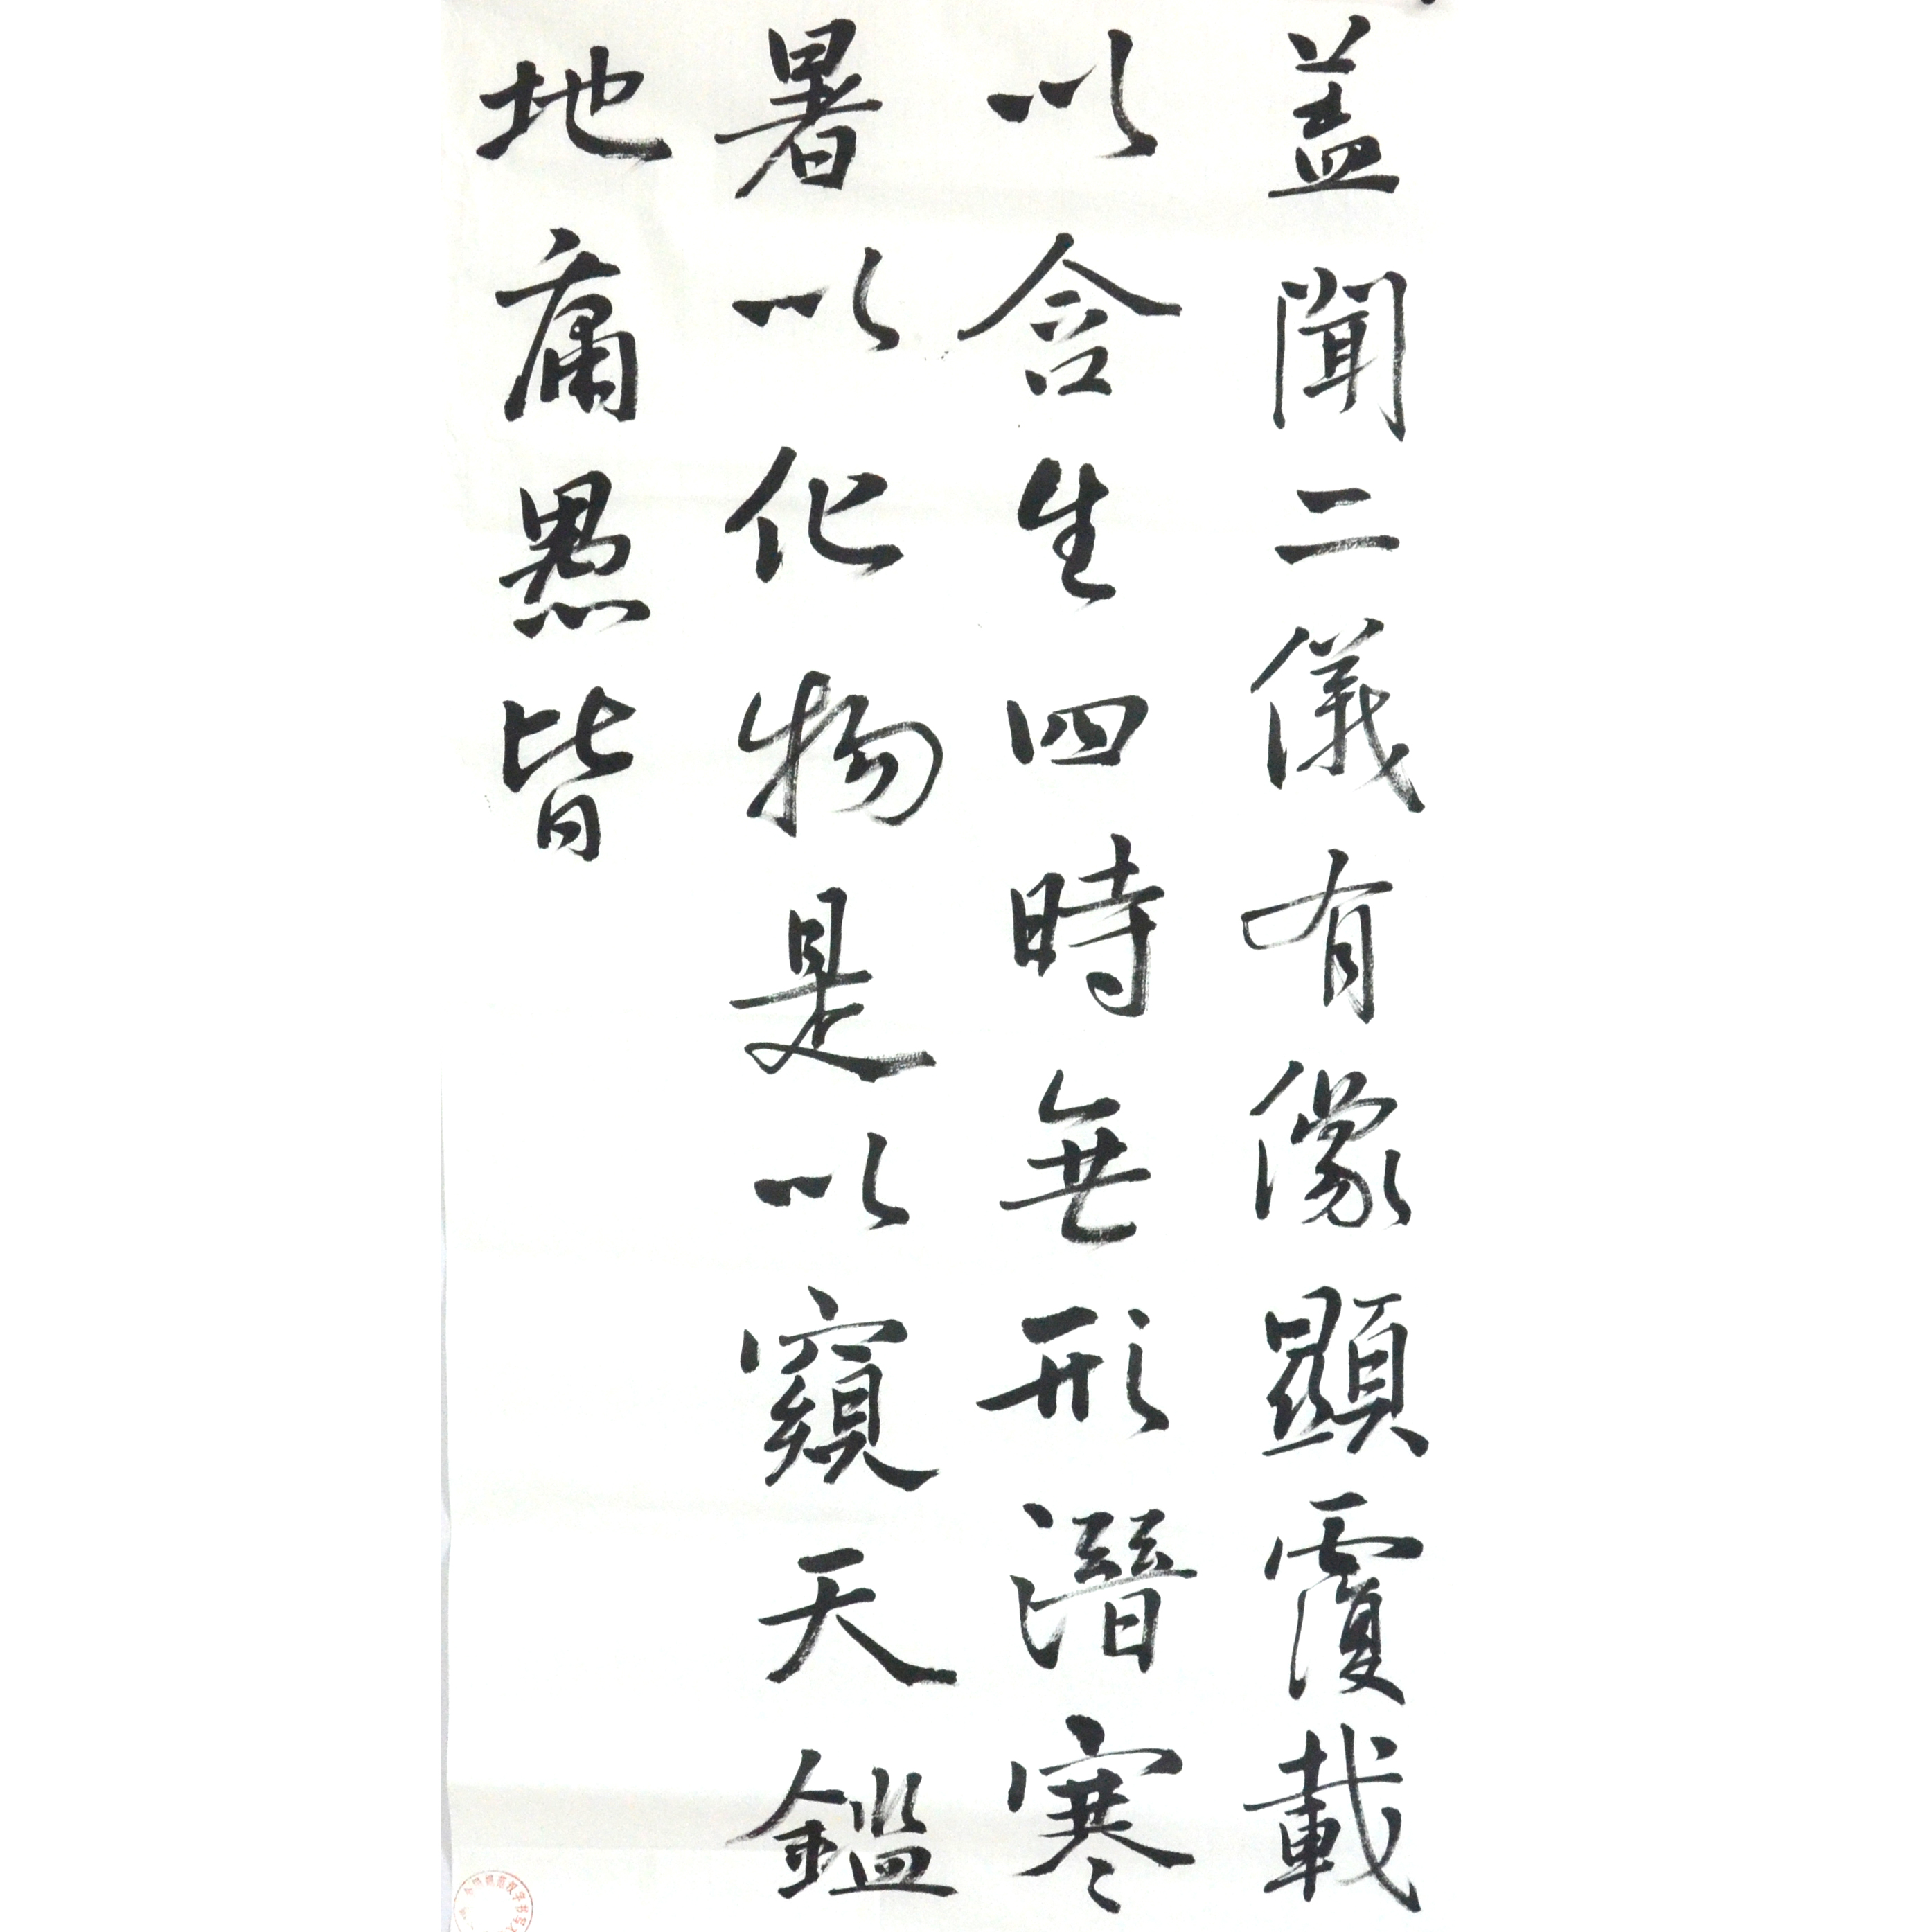 盖聞二儀有像顯覆載
以含生四時無形潛寒
暑以化物是以窺天鑑
地庸愚皆